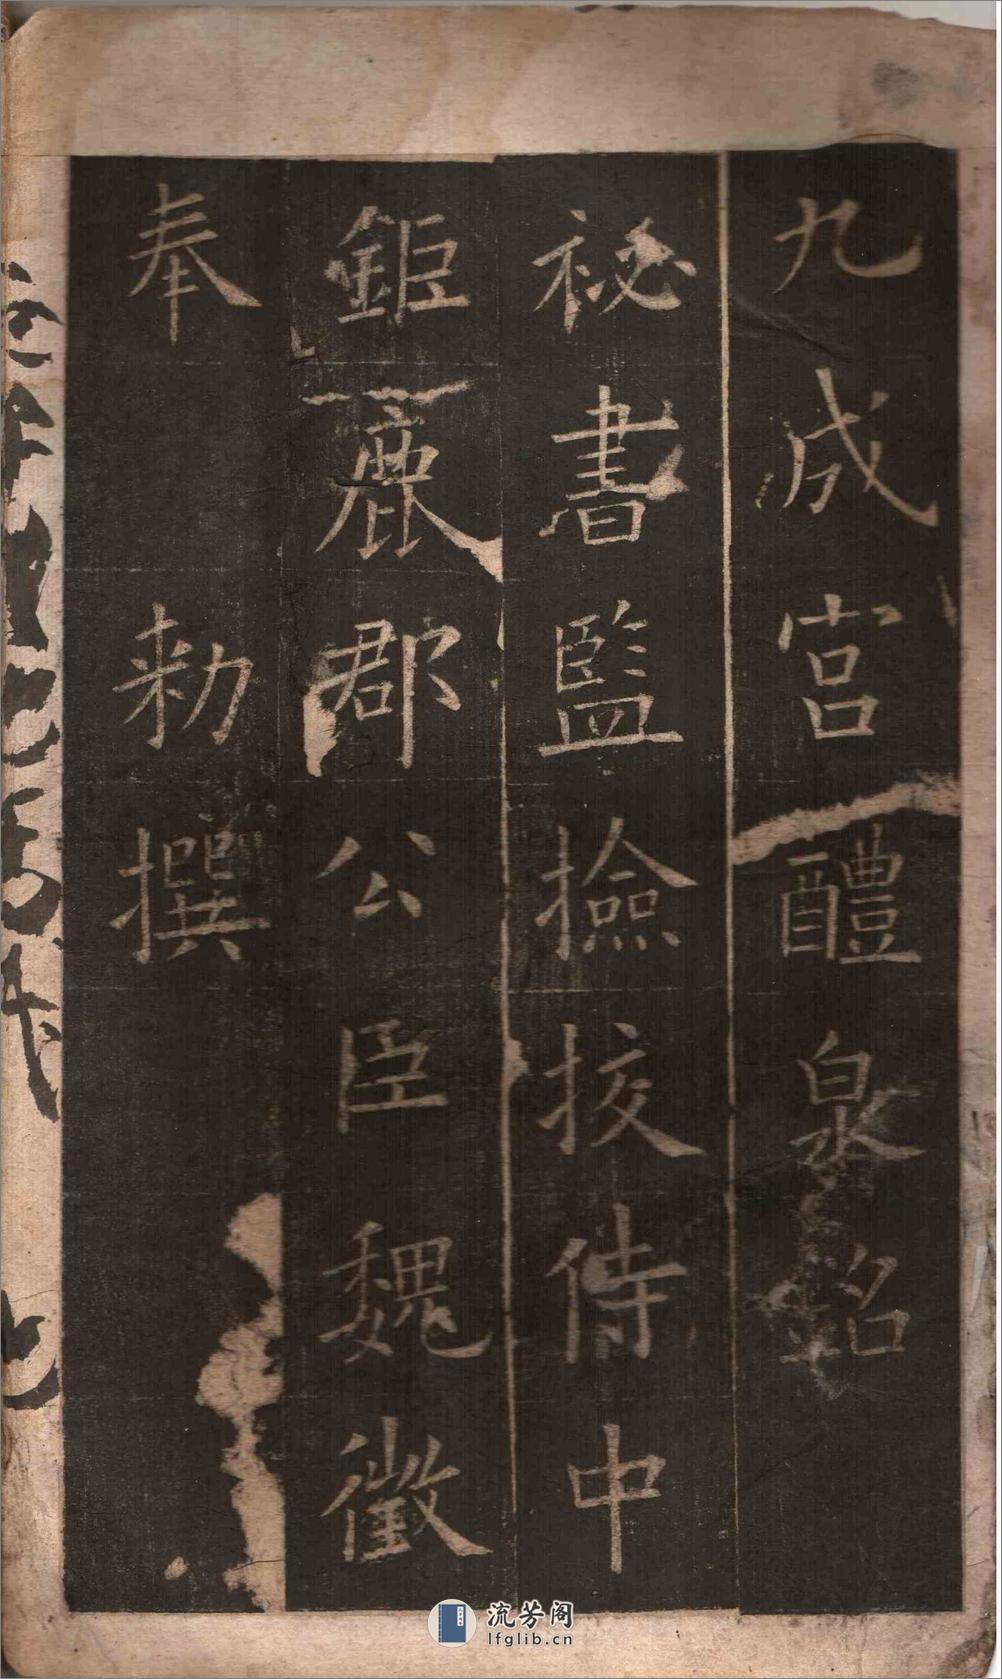 九成宮醴泉銘
祕書監撿挍侍中
鉅鹿郡公臣魏徵
奉 勑撰
流芳阁
lfglib.cn